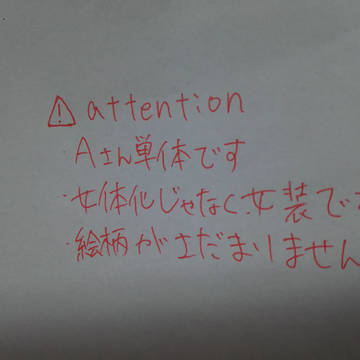 ⚠ attention
・Aさん単体です
・女体化じゃなく、女装で
・絵柄がさだまりません